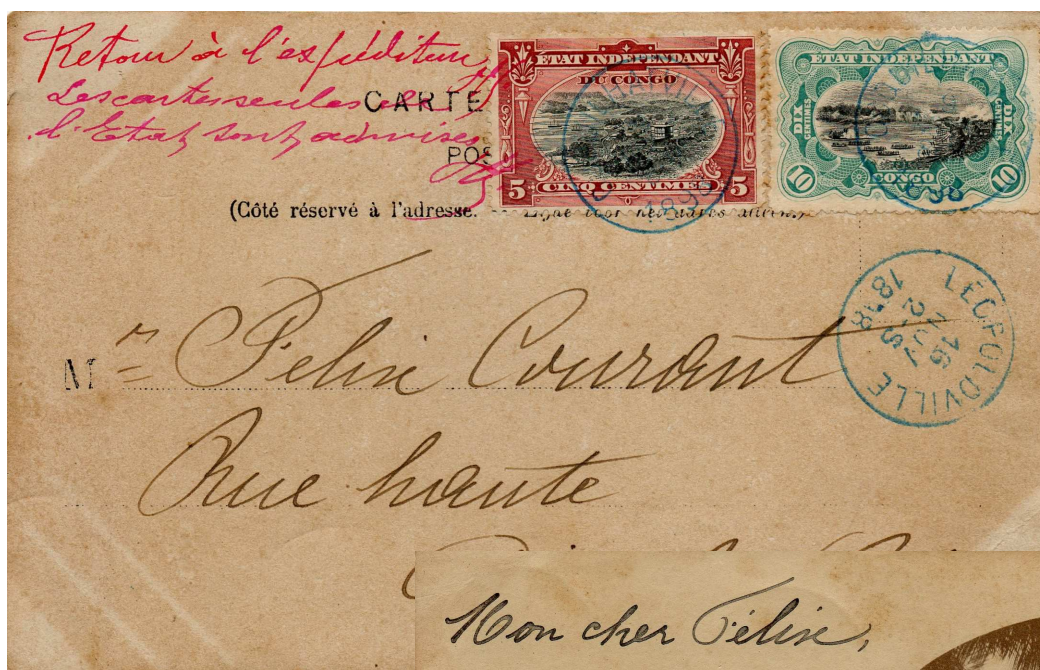 Retour à l'expéditeur
Les cartes seules de
l'Etat sont admises
CARTE
POS
ETAT INDEPENDANT
DU CONGO
5 CINQ CENTIMES 5
ETAT INDEPENDANT
DIX CENTIMES
DIX CENTIMES
10 CONGO 10
(Côté réservé à l'adresse.
LÉOPOLDVILLE
16
2-S
1898
Mr Félix Courant
Rue haute
Mon cher Félix,